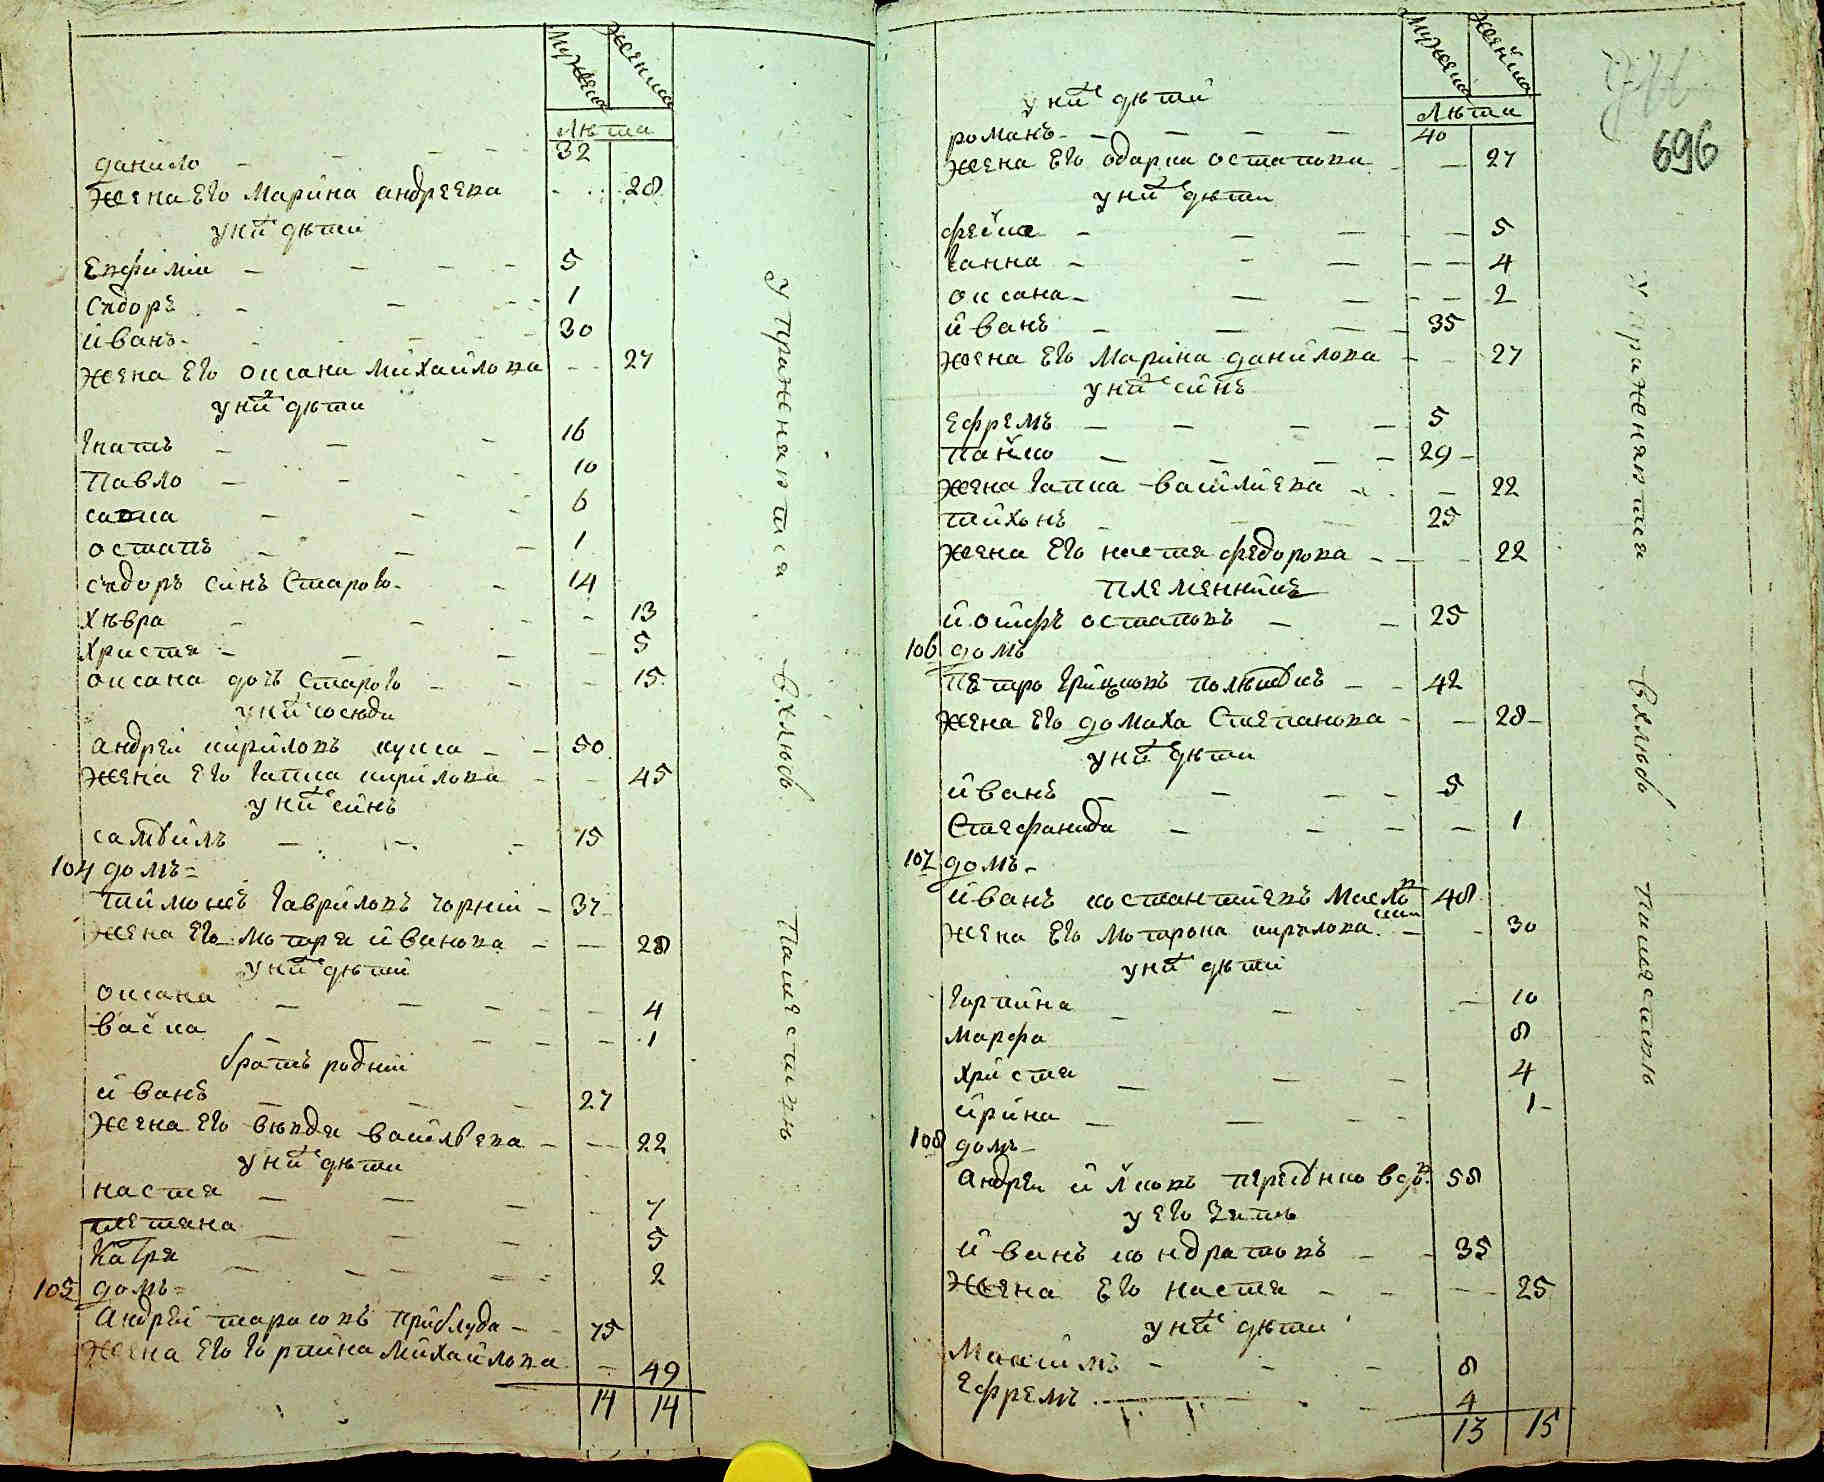 Мужеска Женска
Лѣта
данило 32
жена его Марина андреева 28
у них дѣти
Евфимія 5
Сидоръ 1
иванъ 30
жена его оксана михайлова 27
у них дѣти
игнатъ 16
Павло 10
савка 6
остапъ 1
сидоръ синъ Старого 14
хѣвра 13
христя 5
оксана дочъ Старого 15
у них сосѣди
андрей кириловъ 50
жена его гапка кирилова 45
у них синъ
самоилъ 15
104 домъ
тимошъ гавриловъ чорній 37
жена его мотря иванова 28
у них дѣти
оксана 4
васка 1
братъ родній
иванъ 27
жена его явдя василѣева 22
у них дѣти
настя 7
тетяна 5
Катря 2
105 домъ
андрей тарасовъ приблуда 75
жена его горпина михайлова 49
14 14
упражняются в хлѣбо пашествѣ
Мужеска Женска
696
Лѣта
у них дѣти
романъ 40
жена его одарка остапова 27
у них дѣти
феска 5
ганна 4
оксана 2
иванъ 35
жена его марина данилова 27
у них синъ
ефремъ 5
панко 29
жена гапка василиева 22
тихонъ 25
жена его настя федорова 22
племенникъ
иосифъ остаповъ 25
106 домъ
петро грицковъ 42
жена его домаха Степанова 28
у них дѣти
иванъ 5
Стефанида 1
107 домъ
иванъ костантиевъ 48
жена его мотрона кирилова 30
у них дѣти
горпина 10
марфа 8
христя 4
ирина 1
108 домъ
андрей 58
у его зять
иванъ кондратовъ 35
жена его настя 25
у них дѣти
максимъ 8
ефремъ 4
13 15
упражняются в хлѣбо пашествѣ